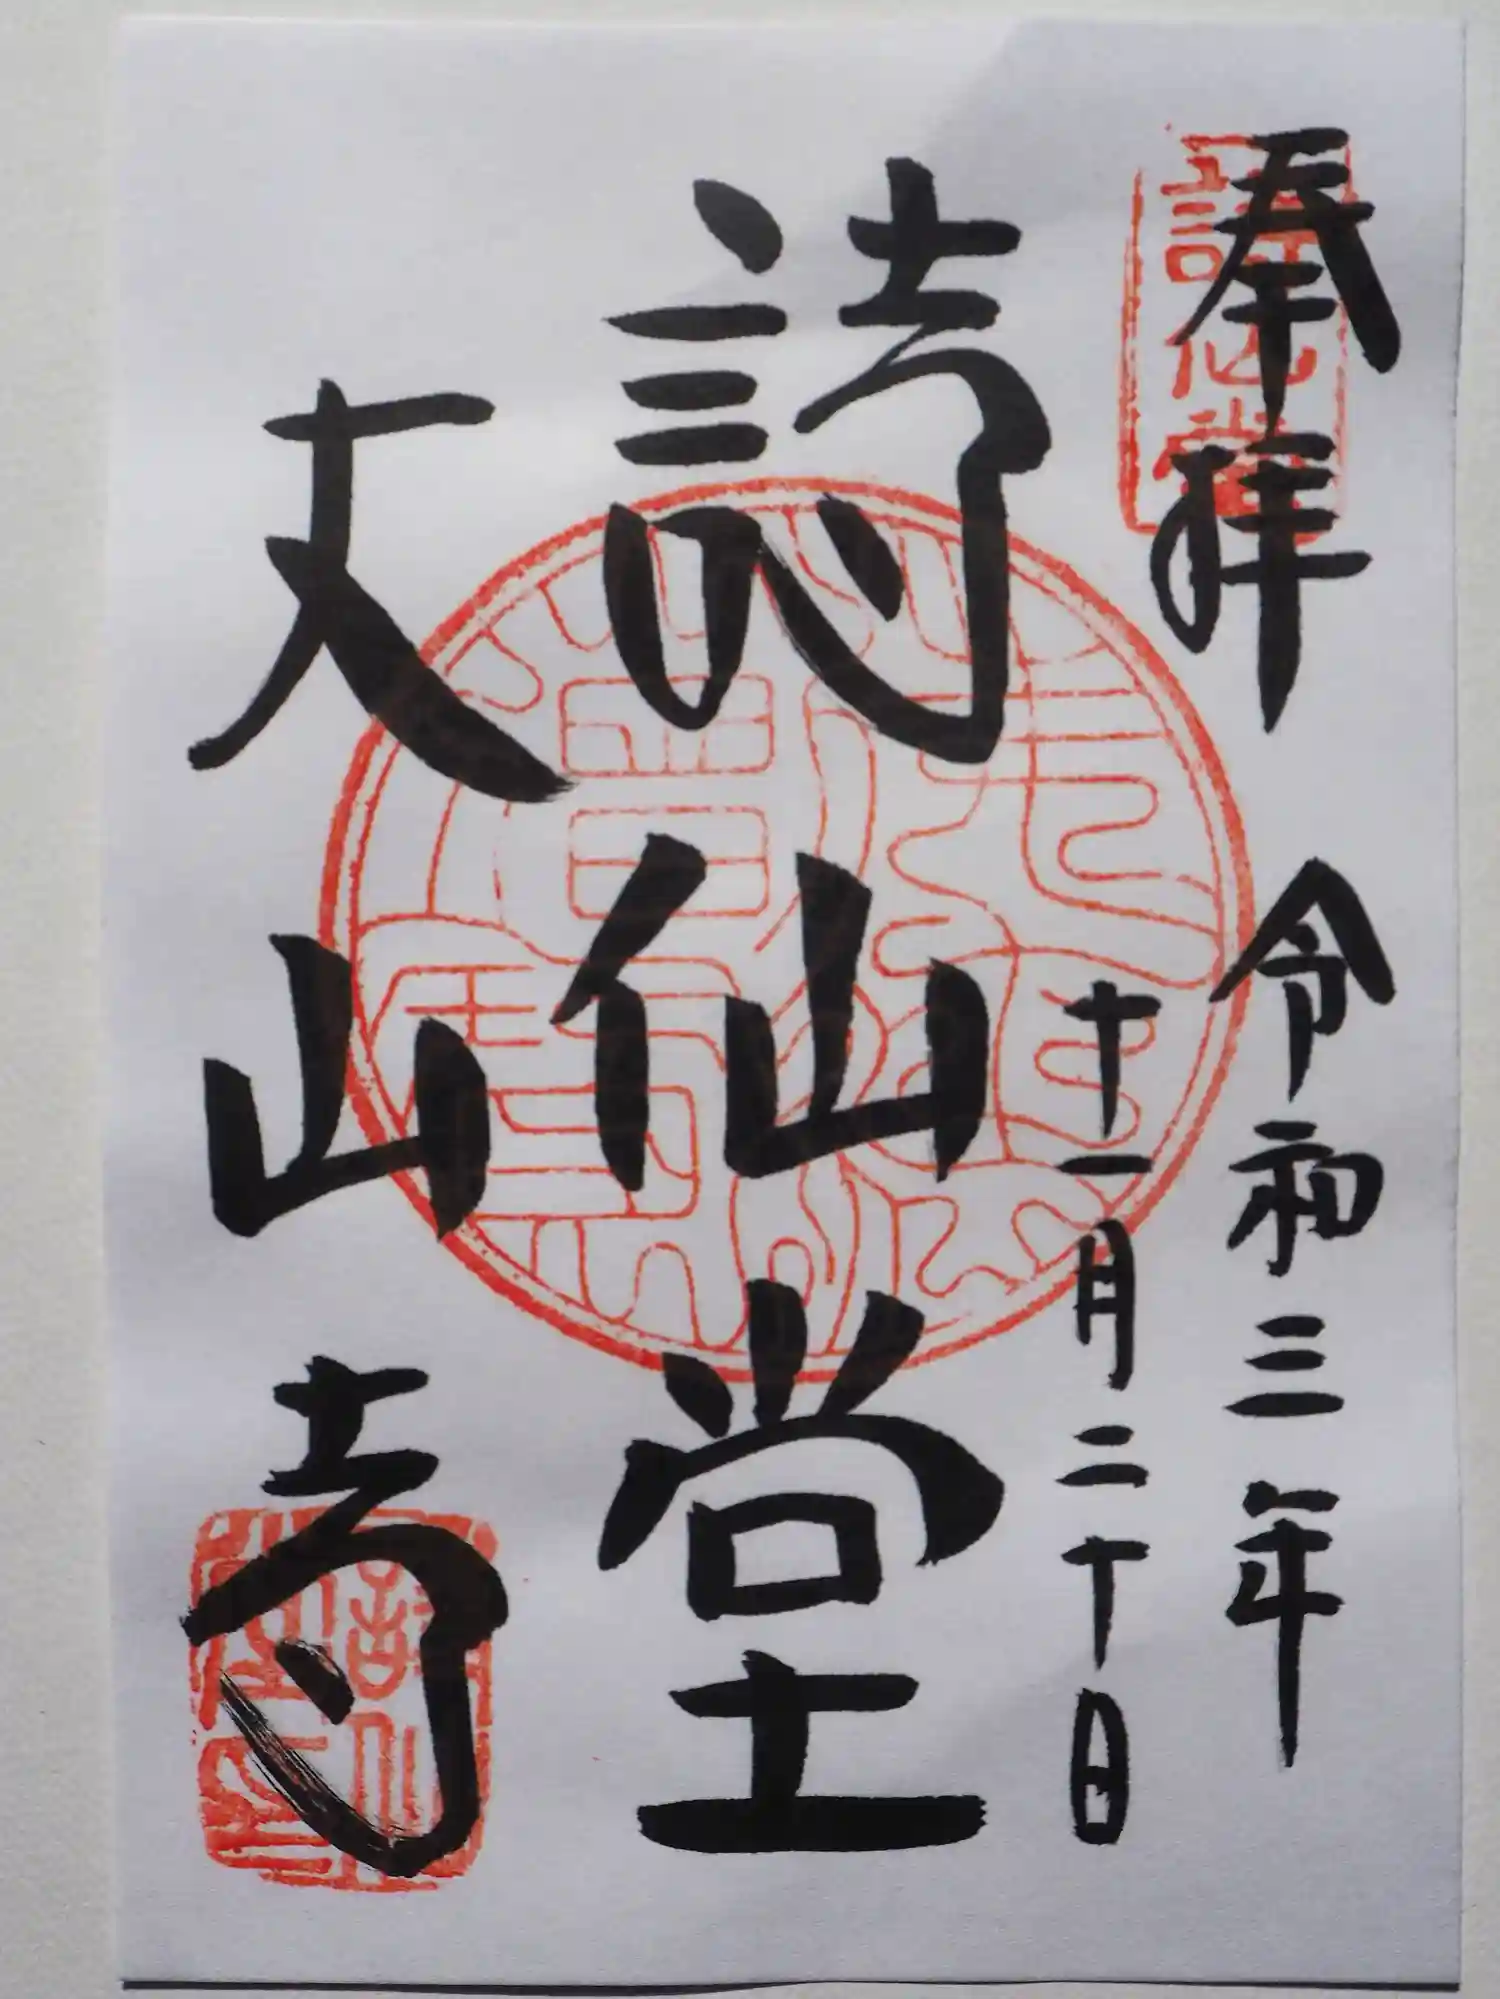 奉拝 令和三年
十一月二十日
詩仙堂
丈山寺
詩仙堂